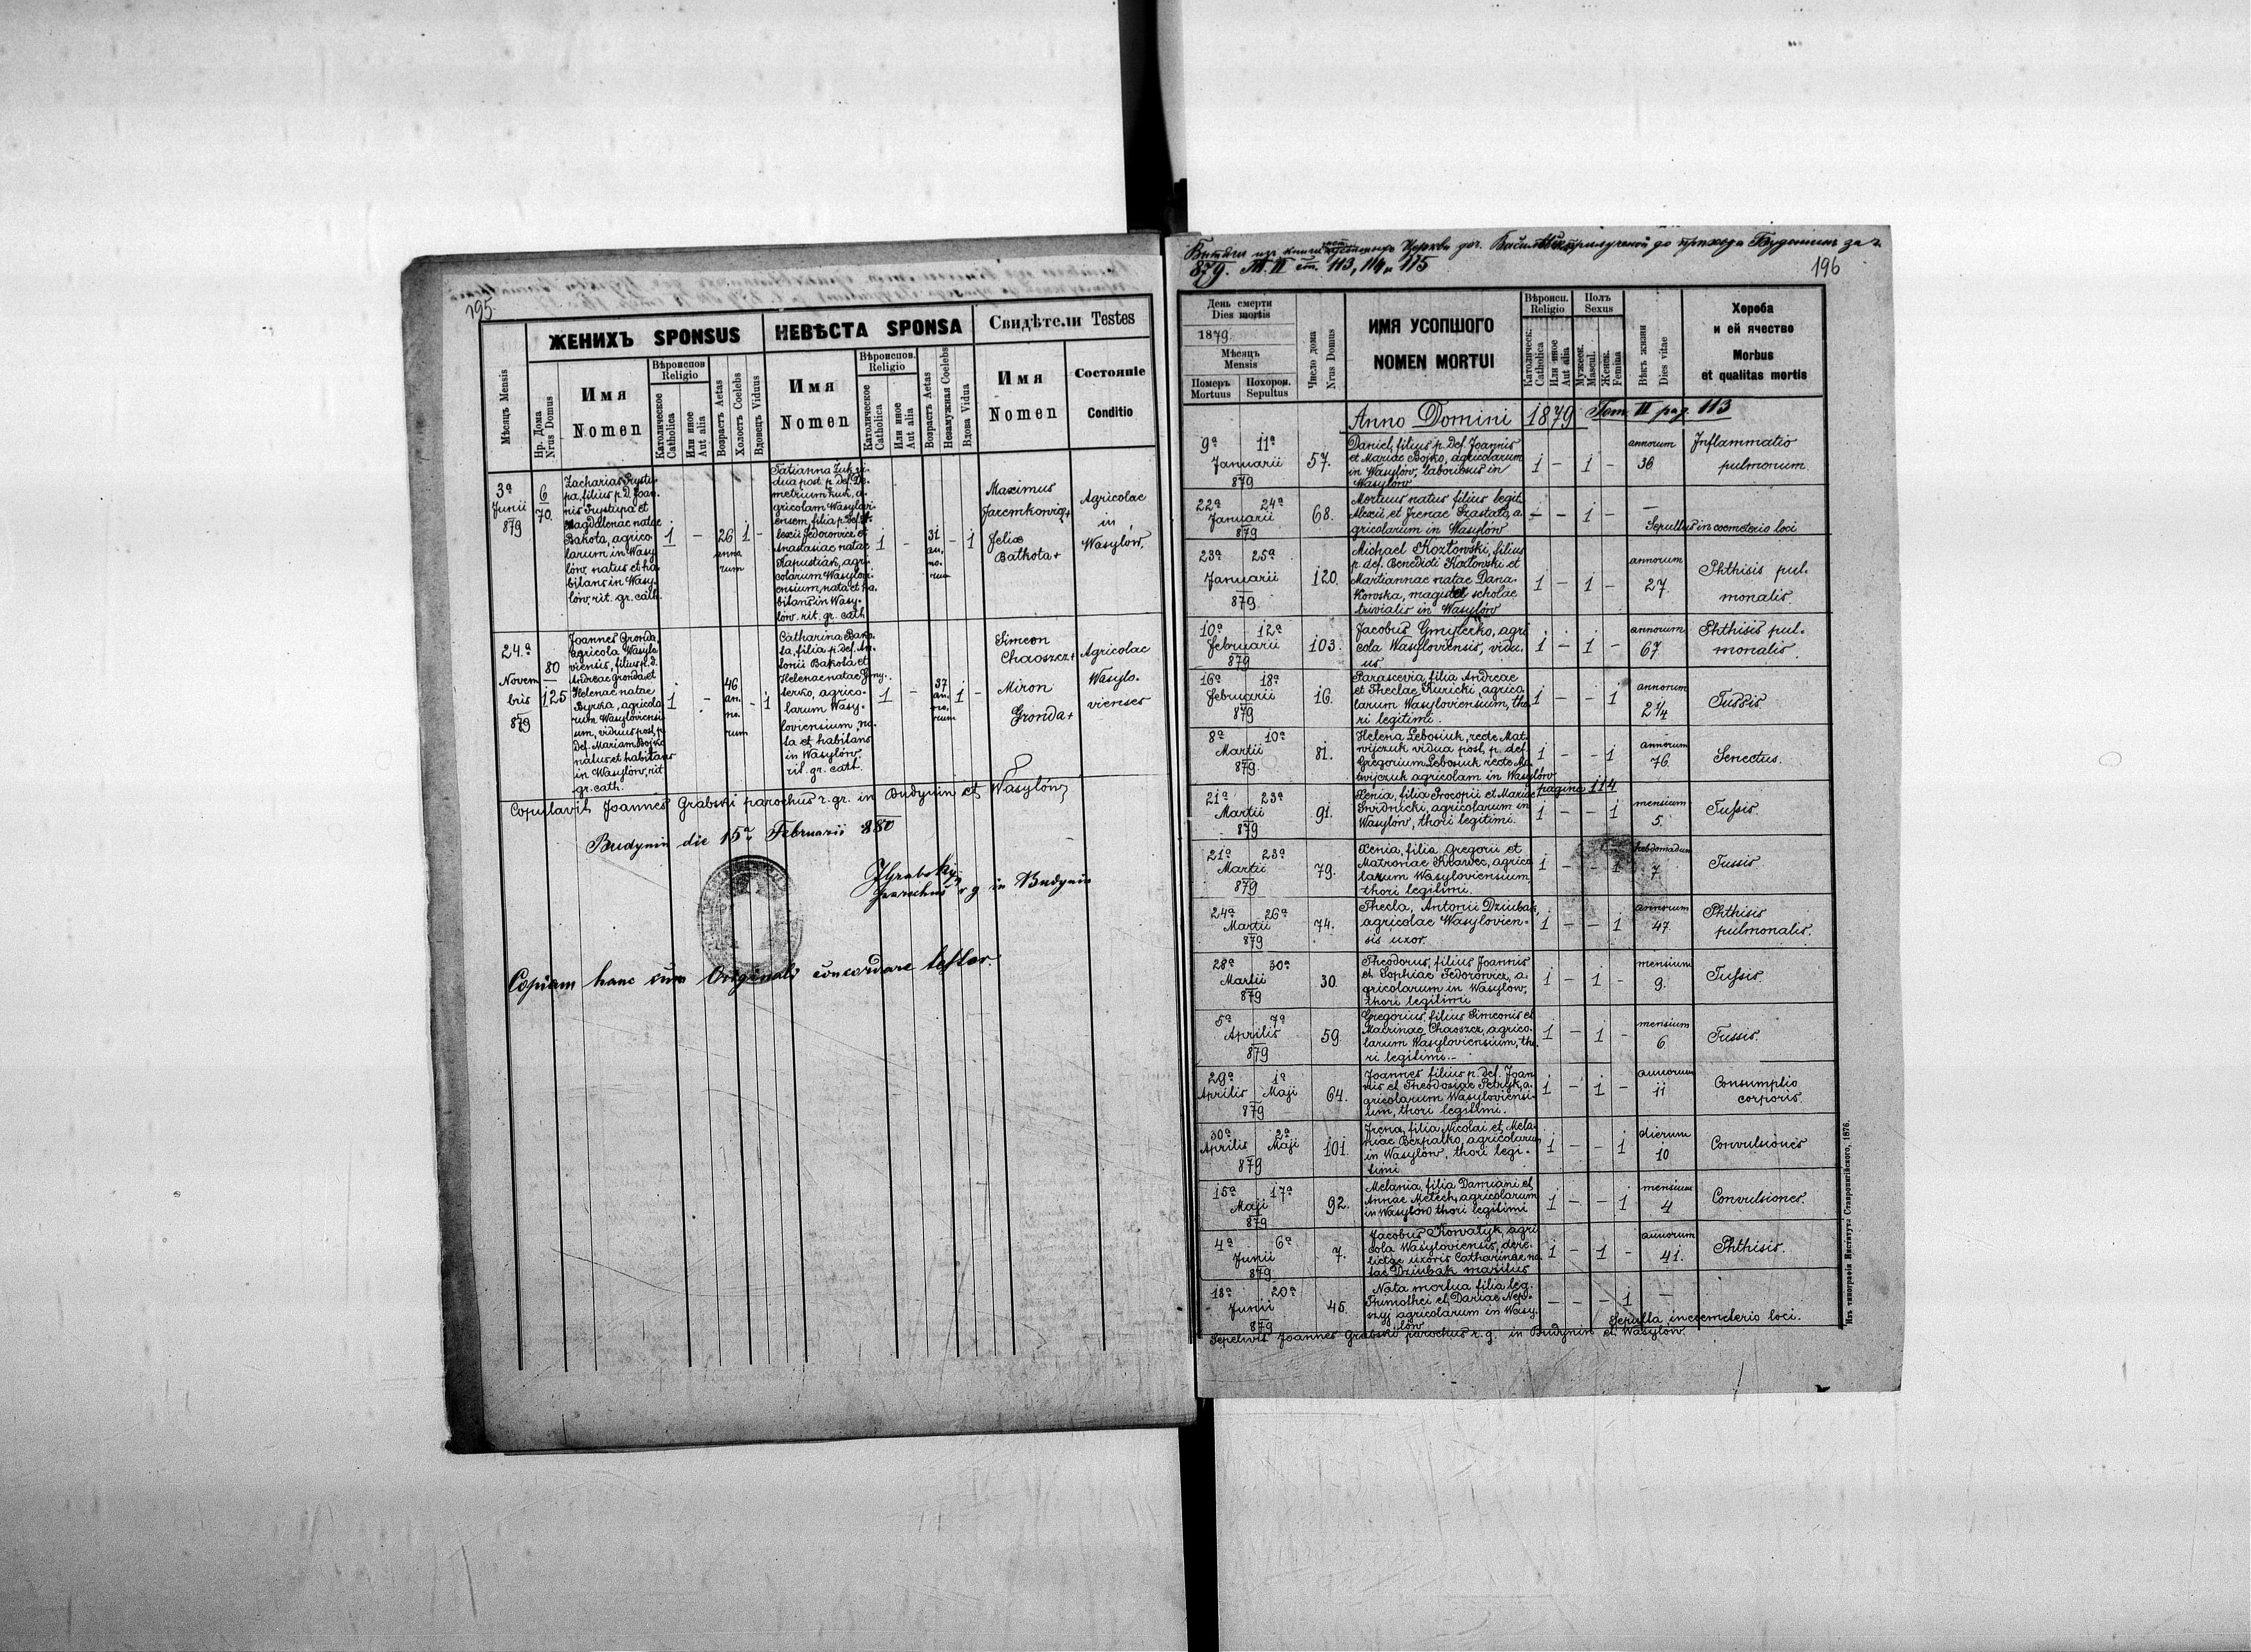 195.
ЖЕНИХЪ SPONSUS
НЕВѢСТА SPONSA
Свидѣтели Testes
Мѣсяцъ Mensis
Нр. Дома
Nrus Domus
Имя
Nomen
Вѣроиспов
Religio
Католическое
Catholica
Или иное
Aut alia
Возрастъ Aetas
Холостъ Coelebs
Вдовецъ Viduus
Имя
Nomen
Вѣроиспов.
Religio
Католическое
Catholica
Или иное
Aut alia
Возрастъ Aetas
Незамужная Coelebs
Вдова Vidua
Имя
Nomen
Состояніе
Conditio
3ª
Junii
879
6
70.
Zacharias Prystu-
pa, filius p. D. Joan-
nis Prystupa et
Magdalenae natae
Bakota, agrico
larum in Wasy
lów, natus et ha-
bitans in Wasy-
lów, rit. gr. cath.
1
-
26
anno
rum
1
-
Tatianna Zuk vi-
dua post. p. def. De-
metrium Zuk, a-
gricolam Wasylovi-
ensem, filia p. def. A-
lexii Fedorowicz et
Anastasiae natae
Kapustiak, agri-
colarum Wasylovi-
ensium, nata et ha-
bitans in Wasy-
lów. rit. gr. cath
1
-
31
an-
no-
rum
-
1
Maximus
Jaremkowicz+
Felix
Batkota+
Agricolae
in
Wasylów.
24.ª
Novem
bris
879
80
125
Joannes Gronda,
agricola Wasylo
viensis, filius p. d.
Andreae Gronda et
Helenae natae
Byrka, agricola
rum Wasyloviensi
um, viduus post. p.
def. Mariam Bojko
natus et habitans
in Wasylów, rit
gr. cath.
1
-
46
an-
no-
rum
-
1
Catharina Bako
ta, filia p. def. An-
tonii Bakota et
Helenae natae Gmy-
terko, agrico-
larum Wasy-
loviensium, na-
ta et habitans
in Wasylów,
rit. gr. cath.
1
-
37
an-
no-
rum
1
-
Simeon
Chaoszcz+
Miron
Gronda+
Agricolae
Wasylo-
vienses
Copulavit Joannes Grabski parochus r. gr. in Budynin et Wasylów
Budynin die 15ª Februarii 880
JGrabsky
parochus r g in Budynin
Copiam hanc cum Originali concordare testor.
196
879. Т. II ст. 113, 114, 115
День смерти
Dies mortis
1879
Мѣсяцъ
Mensis
Померъ
Mortuus
Похорон.
Sepultus
Число дома
Nrus Domus
ИМЯ УСОПШОГО
NOMEN MORTUI
Вѣроисп.
Religio
Католическ.
Catholica
Или иное
Aut alia
Полъ
Sexus
Мужеск.
Mascul.
Женск.
Femina
Вѣкъ жизни
Dies vitae
Хороба
и ей ячество
Morbus
et qualitas mortis
Anno Domini 1879 Tom II pag. 113
9ª 11ª
Januarii
879
57.
Daniel, filius p. def. Joannis
et Mariae Bojko, agricolarum
in Wasylów, laboriosus in
Wasylów
1 - 1 -
annorum
36
Inflammatio
pulmonum
22ª 24ª
Januarii
879
68.
Mortuus natus filius legit.
Alexii et Irenae Szastało, a-
gricolarum in Wasylów
- - 1 -
-
Sepultus in coemeterio loci
23ª 25ª
Januarii
879
120.
Michael Kozłowski, filius
p. def. Benedicti Kozłowski et
Martiannae natae Dana-
Kowska, magister scholae
trivialis in Wasylów
1 - 1 -
annorum
27.
Phthisis pul-
monalis.
10ª 12ª
Februarii
879
103.
Jacobus Gmyterko, agri
cola Wasyloviensis, vidu-
us.
1 - 1 -
annorum
67
Phthisis pul-
monalis.
16ª 18ª
Februarii
879
16.
Parascevia, filia Andreae
et Theclae Kuricki, agrico
larum Wasyloviensium, tho-
ri legitimi.
1 - - 1
annorum
2 1/4
Tussis
8ª 10ª
Martii
879.
81.
Helena Lebosiuk, recte Mat-
wijczuk vidua post. p. def.
Gregorium Lebosiuk recte Ma-
twijczuk agricolam in Wasylów
1 - - 1
annorum
76.
Senectus.
pagina 114
21ª 23ª
Martii
879
91.
Xenia, filia Procopii et Mariae
Swidnicki, agricolarum in
Wasylów, thori legitimi.
1 - - 1
mensium
5.
Tussis.
21ª 23ª
Martii
879
79.
Xenia, filia Gregorii et
Matronae Krawec, agrico
larum Wasyloviensium,
thori legitimi.
1 - - 1
hebdomadum
7
Tussis
24ª 26ª
Martii
879
74.
Thecla, Antonii Dziubak,
agricolae Wasylovien-
sis uxor.
1 - - 1
annorum
47
Phthisis
pulmonalis.
28ª 30ª
Martii
879
30.
Theodorus, filius Joannis
et Sophiae Fedorowicz, a-
gricolarum in Wasylow,
thori legitimi
1 - 1 -
mensium
9.
Tussis.
5ª 7ª
Aprilis
879
59
Gregorius, filius Simeonis et
Macrinae Chaoszcz, agrico-
larum Wasyloviensium, tho-
ri legitimi.-
1 - 1 -
mensium
6
Tussis.
29ª 1ª
Aprilis Maji
879
64.
Joannes filius p. def. Joan
nis et Theodosiae Petryk, a-
gricolarum Wasyloviensi-
um, thori legitimi.
1 - 1 -
annorum
11
Consumptio
corporis.
30ª 2ª
Aprilis Maji
879
101.
Irena, filia Nicolai et Mela-
niae Bezpalko, agricolarum
in Wasylów, thori legi-
timi
1 - - 1
dierum
10
Convulsiones
15ª 17ª
Maji
879
92.
Melania, filia Damiani et
Annae Metech, agricolarum
in Wasylów thori legitimi
1 - - 1
mensium
4
Convulsiones.
4ª 6ª
Junii
879
7.
Jacobus Kowalyk, agri
cola Wasyloviensis, dere-
lictae uxoris Catharinae na-
tae Dziubak maritus
1 - 1 -
annorum
41.
Phthisis.
18ª 20ª
Junii
879
45.
Nata mortua filia leg.
Thimothei et Dariae Nep-
szyj agricolarum in Wasy-
lów
- - - 1
-
Sepulta in coemeterio loci.
Sepelivit Joannes Grabski parochus r. g. in Budynin et Wasylów.
Изъ типографіи Института Ставропигійского, 1876.